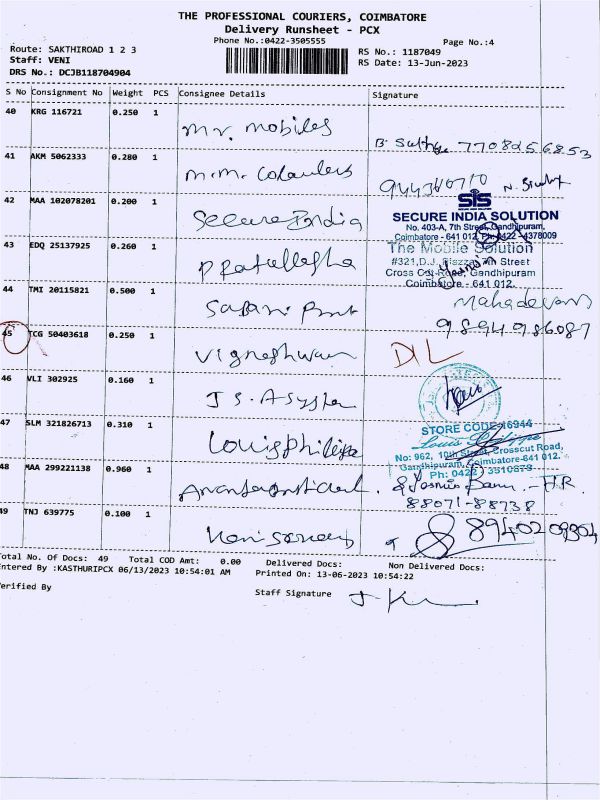 THE PROFESSIONAL COURIERS, COIMBATORE
Delivery Runsheet - PCX
Phone No.:0422-3505555
Page No.:4
Route: SAKTHIROAD 1 2 3
Staff: VENI
DRS No.: DCJB118704904
RS No.: 1187049
RS Date: 13-Jun-2023
S No Consignment No Weight PCS Consignee Details Signature
40 KRG 116721 0.250 1
Mr. mobiles
7708256853
41 AKM 5062333 0.280 1
m.m.
42 MAA 102078201 0.200 1
Secure India
SIS
SECURE INDIA SOLUTION
No. 403-A, 7th Street, Gandhipuram,
Coimbatore - 641 012. Ph: 0422 -4378009
43 EDQ 25137925 0.260 1
The Mobile Solution
#321,D.J. Plazza, 7th Street
Cross Cut Road, Gandhipuram
Coimbatore - 641 012.
44 TMI 20115821 0.500 1
Mahadevan
9894986087
45 TCG 50403618 0.250 1
Vigneshwar
D/L
46 VLI 302925 0.160 1
J S.
47 SLM 321826713 0.310 1
Louis philippe
STORE CODE:16944
Louis Philippe
No: 962, 10th Street, Crosscut Road,
Gandhipuram, Coimbatore-641 012.
Ph: 0422 3510878
48 MAA 299221138 0.960 1
88071-88738
49 TNJ 639775 0.100 1
8940209304
Total No. Of Docs: 49 Total COD Amt: 0.00 Delivered Docs: Non Delivered Docs:
Entered By :KASTHURIPCX 06/13/2023 10:54:01 AM Printed On: 13-06-2023 10:54:22
Verified By
Staff Signature